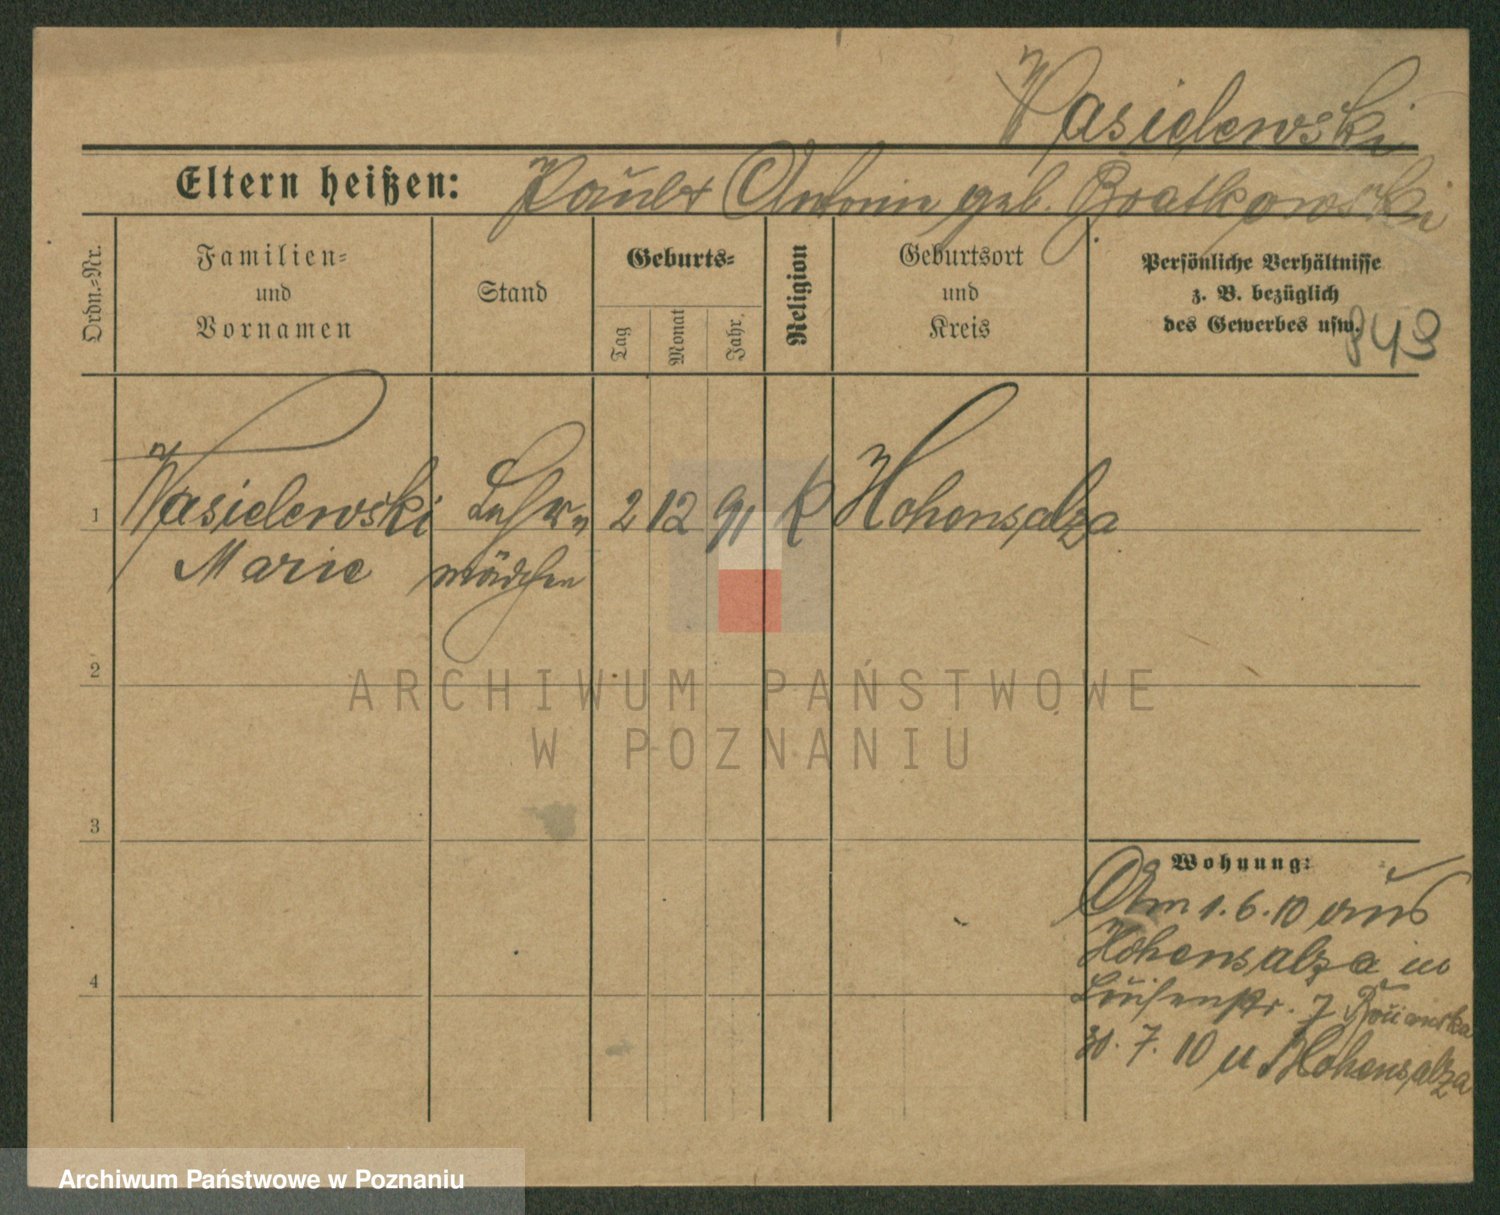 Wasielewski
Eltern heißen: Antonie geb. Bratkowski
Ordn.-Nr.
Familien-
und
Vornamen
Stand
Geburts-
Tag
Monat
Jahr.
Religion
Geburtsort
und
Kreis
Persönliche Verhältnisse
z. B. bezüglich
des Gewerbes usw.
943
1 Wasielewski Lehr= 2 12 91 K Hohensalza
Marie mädchen
2
ARCHIWUM PAŃSTWOWE
W POZNANIU
3
Wohnung:
Am 1.6.10 aus
Hohensalza in
4
Luisenstr. 7
30. 7. 10 u Hohensalza
Archiwum Państwowe w Poznaniu